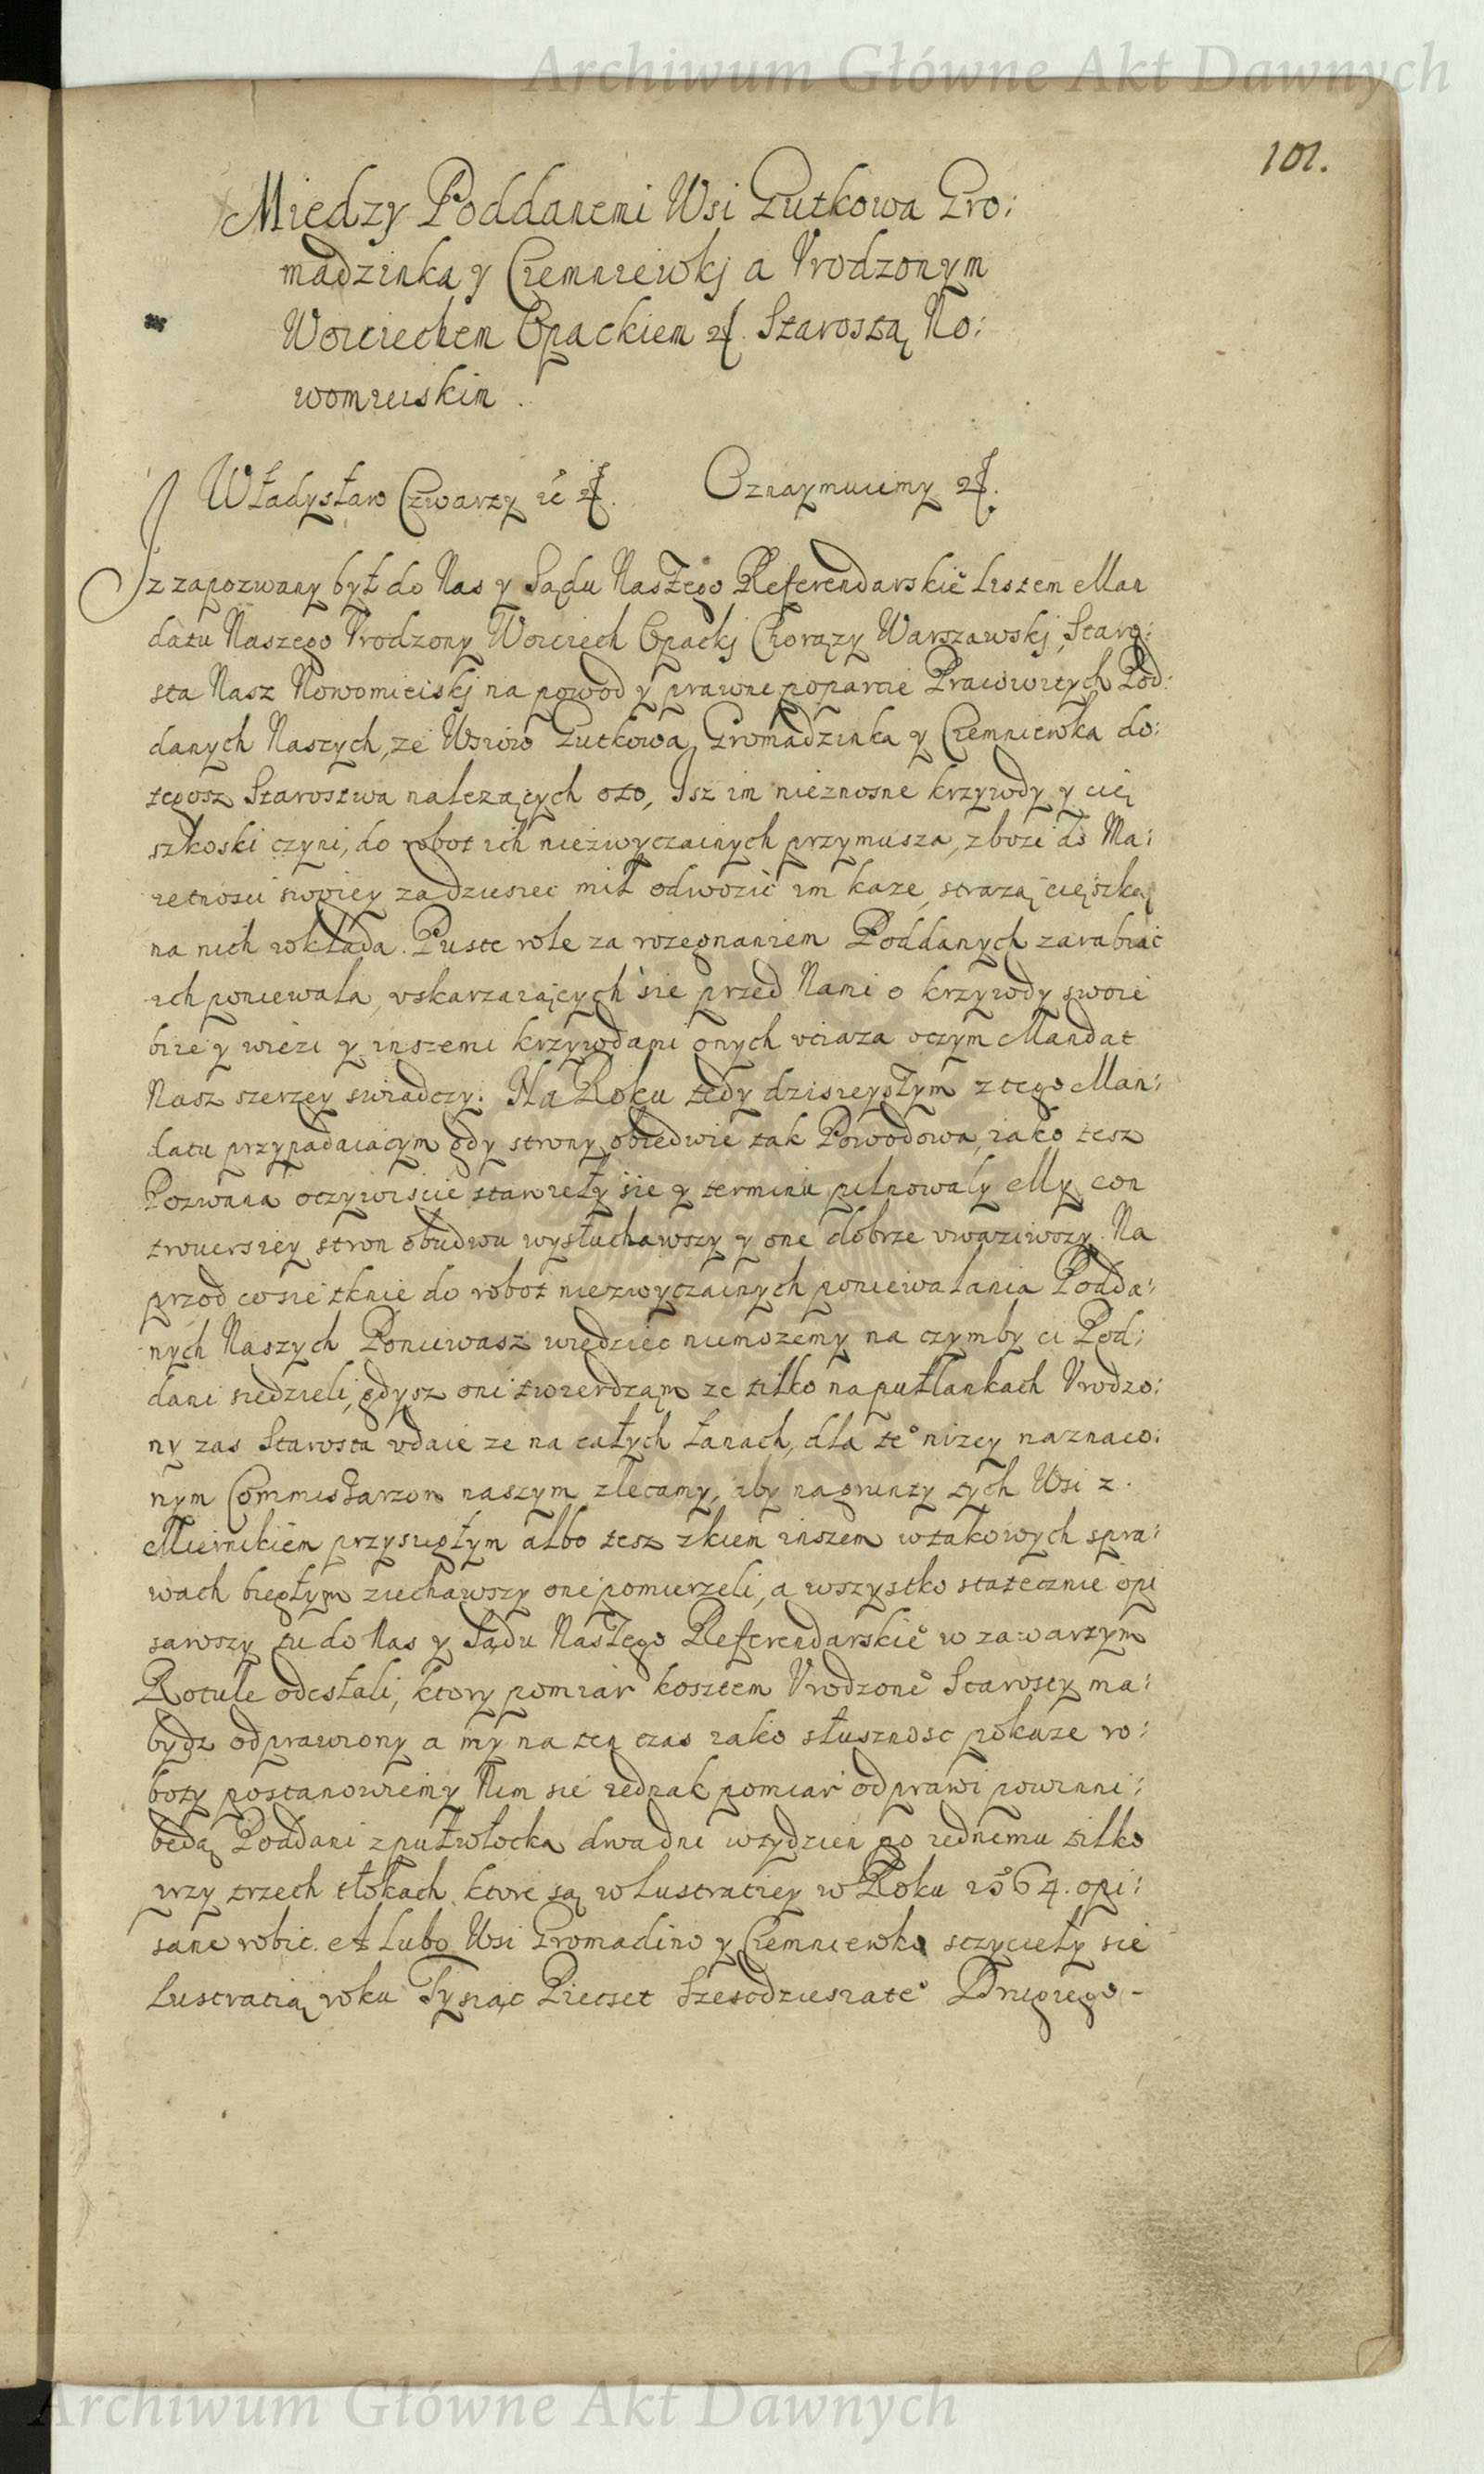 Archiwum Główne Akt Dawnych
101.
Między Poddanemi Wsi Gutkowa Gro:
madzinka y Czemniewkj a Vrodzonym
Woiciechem Opackiem etc. Starostą No:
womieiskim.
Władysław Czwarty etc etc. Oznaymuiemy etc.
Iz zapozwany był do Nas y Sądu Naszego Referendarskieo Listem Man
datu Naszego Vrodzony Woiciech Opackj Chorązy Warszawskj, Staro:
sta Nasz Nowomieiskj na powod y prawne poparcie Pracowitych Pod:
danych Naszych, ze Wsiow Gutkowa, Gromadzinka y Czemniewka do:
tegosz Starostwa nalezących oto, Isz im nieznosne krzywdy y cię
szkoski czyni, do robot ich niezwyczainych przymusza, zboze do Ma:
ietnosci swoiey za dziesiec mil odwozic im kaze, strazą cięszką
na nich wkłada. Puste role za rozegnaniem Poddanych zarabiac
ich poniewala, vskarzaiących sie przed Nami o krzywdy swoie
biie y wiezi y inszemi krzywdami onych vciaza oczym Mandat
Nasz szerzey swiadczy. Na Roku tedy dzisieyszym z tego Man:
datu przypadaiącym gdy strony obiedwie tak Powodowa, iako tesz
Pozwana oczywiscie stawieły sie y terminu pilnowały My con
trouersiey stron obudwu wysłuchawszy y one dobrze vwazywszy. Na
przod co sie tknie do robot niezwyczainych poniewalania Podda:
nych Naszych Poniewasz wiedziec niemozemy na czymby ci Pod:
dani siedzieli, gdysz oni twierdzam ze tilko na pułlankach Vrodzo:
ny zas Starosta vdaie ze na całych łanach, dla teo nizey naznaco:
nym Commissarzom naszym zlecamy, aby na grunty tych Wsi z
Miernikiem przysięgłym albo tesz zkiem inszem wtakowych spra:
wach biegłym ziechawszy one pomierzeli, a wszystko statecznie opi
sawszy tu do Nas y Sądu Naszego Referendarskieo w zawartym
Rotule odesłali, ktory pomiar kosztem Vrodzoneo Starosty ma:
bydz odprawiony a my na ten czas iako słusznosc pokaze ro:
boty postanowiemy Nim sie iednak pomiar odprawi powinni:
bedą Poddani z pułwłocka dwa dni wtydzien po iednemu tilko
przy trzech tłokach, ktore są w lustratiey w Roku 1564. opi:
sane robic. A Lubo Wsi Gromadino y Czemniewko sczycieły sie
Lustratią roku Tysiąc Piecset Szescdziesiateo Drugiego -
Archiwum Główne Akt Dawnych